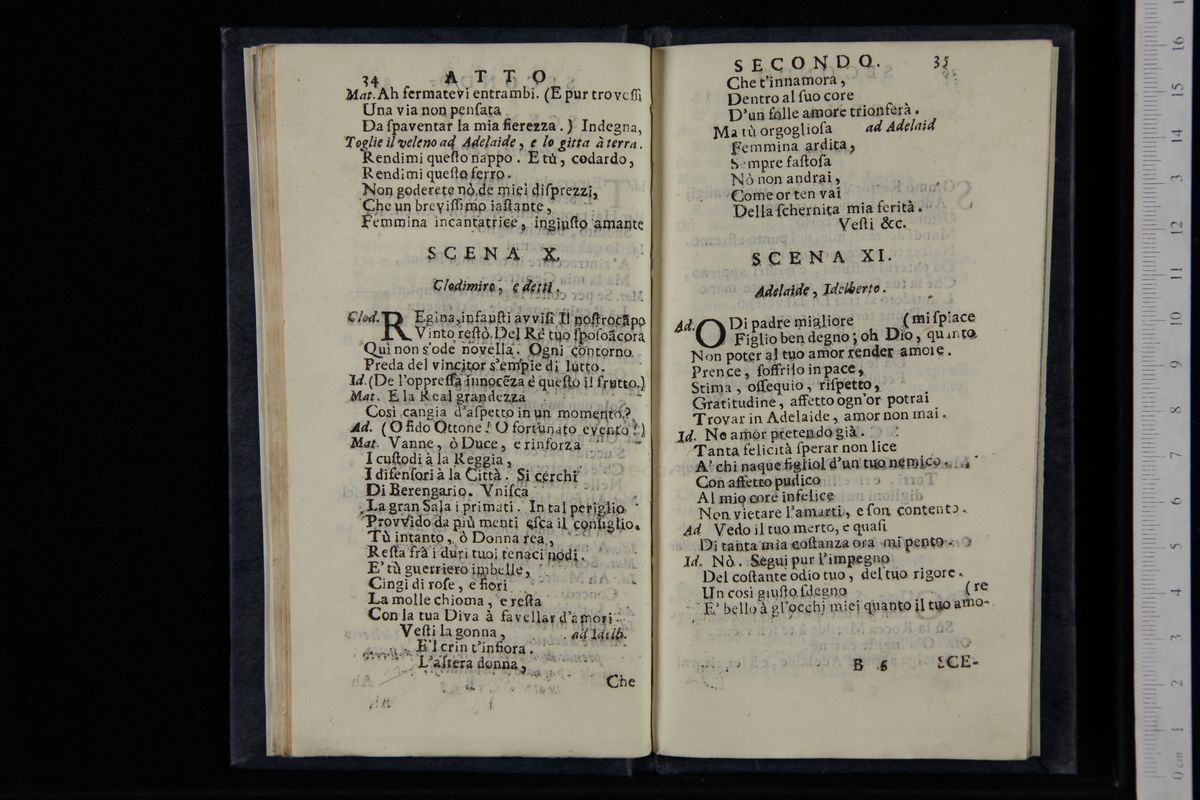 34 ATTO
Mat. Ah fermatevi entrambi. (E pur troveſſi
Una via non penſata
Da ſpaventar la mia fierezza.) Indegna,
Toglie il veleno ad Adelaide, e lo gitta à terra.
Rendimi queſto nappo. E tù, codardo,
Rendimi queſto ferro.
Non goderete nò de miei diſprezzi,
Che un breviſſimo iaſtante,
Femmina incantatrice, ingiuſto amante
SCENA X.
Clodimiro, e detti.
Clod. REgina, infauſti avviſi Il noſtro cāpo
Vinto reſtò. Del Rè tuo ſpoſo ācora
Quì non s'ode novella. Ogni contorno
Preda del vincitor s'empie di lutto.
Id. (De l'oppreſſa innocēza è queſto il frutto.)
Mat. E la Real grandezza
Così cangia d'aſpetto in un momento?
Ad. (O fido Ottone! O fortunato evento!)
Mat. Vanne, ò Duce, e rinforza
I cuſtodi à la Reggia,
I difenſori à la Città. Si cerchi
Di Berengario. Vniſca
La gran Sala i primati. In tal periglio
Provvido da più menti eſca il conſiglio.
Tù intanto, ò Donna rea,
Reſta frà i duri tuoi tenaci nodi.
E' tù guerriero imbelle,
Cingi di roſe, e fiori
La molle chioma, e reſta
Con la tua Diva à favellar d'amori.
Veſti la gonna, ad Idelb.
E'l crin t'infiora.
L'altera donna,
Che
SECONDO. 35
Che t'innamora,
Dentro al ſuo core
D'un folle amore trionferà.
Ma tù orgoglioſa ad Adelaid
Femmina ardita,
Sempre faſtoſa
Nò non andrai,
Come or ten vai
Della ſchernita mia ferità.
Veſti &c.
SCENA XI.
Adelaide, Idelberto.
Ad. ODi padre migliore (mi ſpiace
Figlio ben degno; oh Dio, quanto
Non poter al tuo amor render amore.
Prence, ſoffrilo in pace,
Stima, oſſequio, riſpetto,
Gratitudine, affetto ogn'or potrai
Trovar in Adelaide, amor non mai.
Id. No amor pretendo già.
Tanta felicità ſperar non lice
A' chi naque figliol d'un tuo nemico.
Con affetto pudico
Al mio core infelice
Non vietare l'amarti, e ſon contento.
Ad Vedo il tuo merto, e quaſi
Di tanta mia coſtanza ora mi pento.
Id. Nò. Segui pur l'impegno
Del coſtante odio tuo, del tuo rigore.
Un così giuſto ſdegno (re
E' bello à gl'occhi miei quanto il tuo amo-
B 6 SCE-